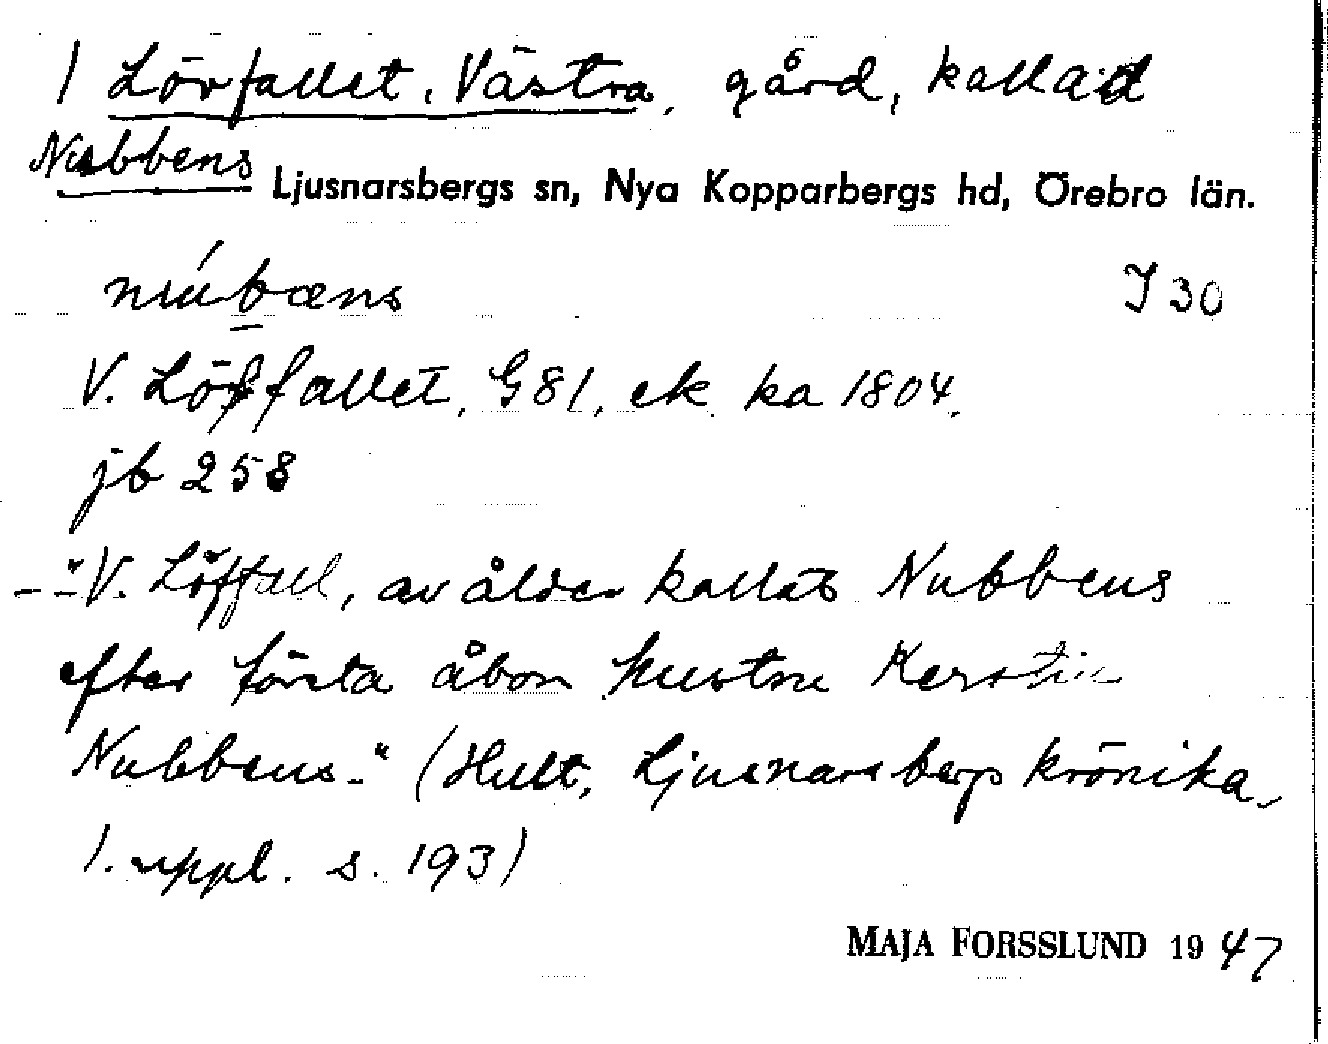 1 Lövfallet, Västra, gård, kallad
Nubbens Ljusnarsbergs sn, Nya Kopparbergs hd, Örebro län.
núbæns I 30
V. Löffallet, G 81, ek ka 1804,
jb 258
- "V. Löffall, av ålder kallat Nubbens
efter första åbon hustru Kerstin
Nubbens." (Hult, Ljusnarsbergs krönika,
1. uppl. s. 193)
MAJA FORSSLUND 1947